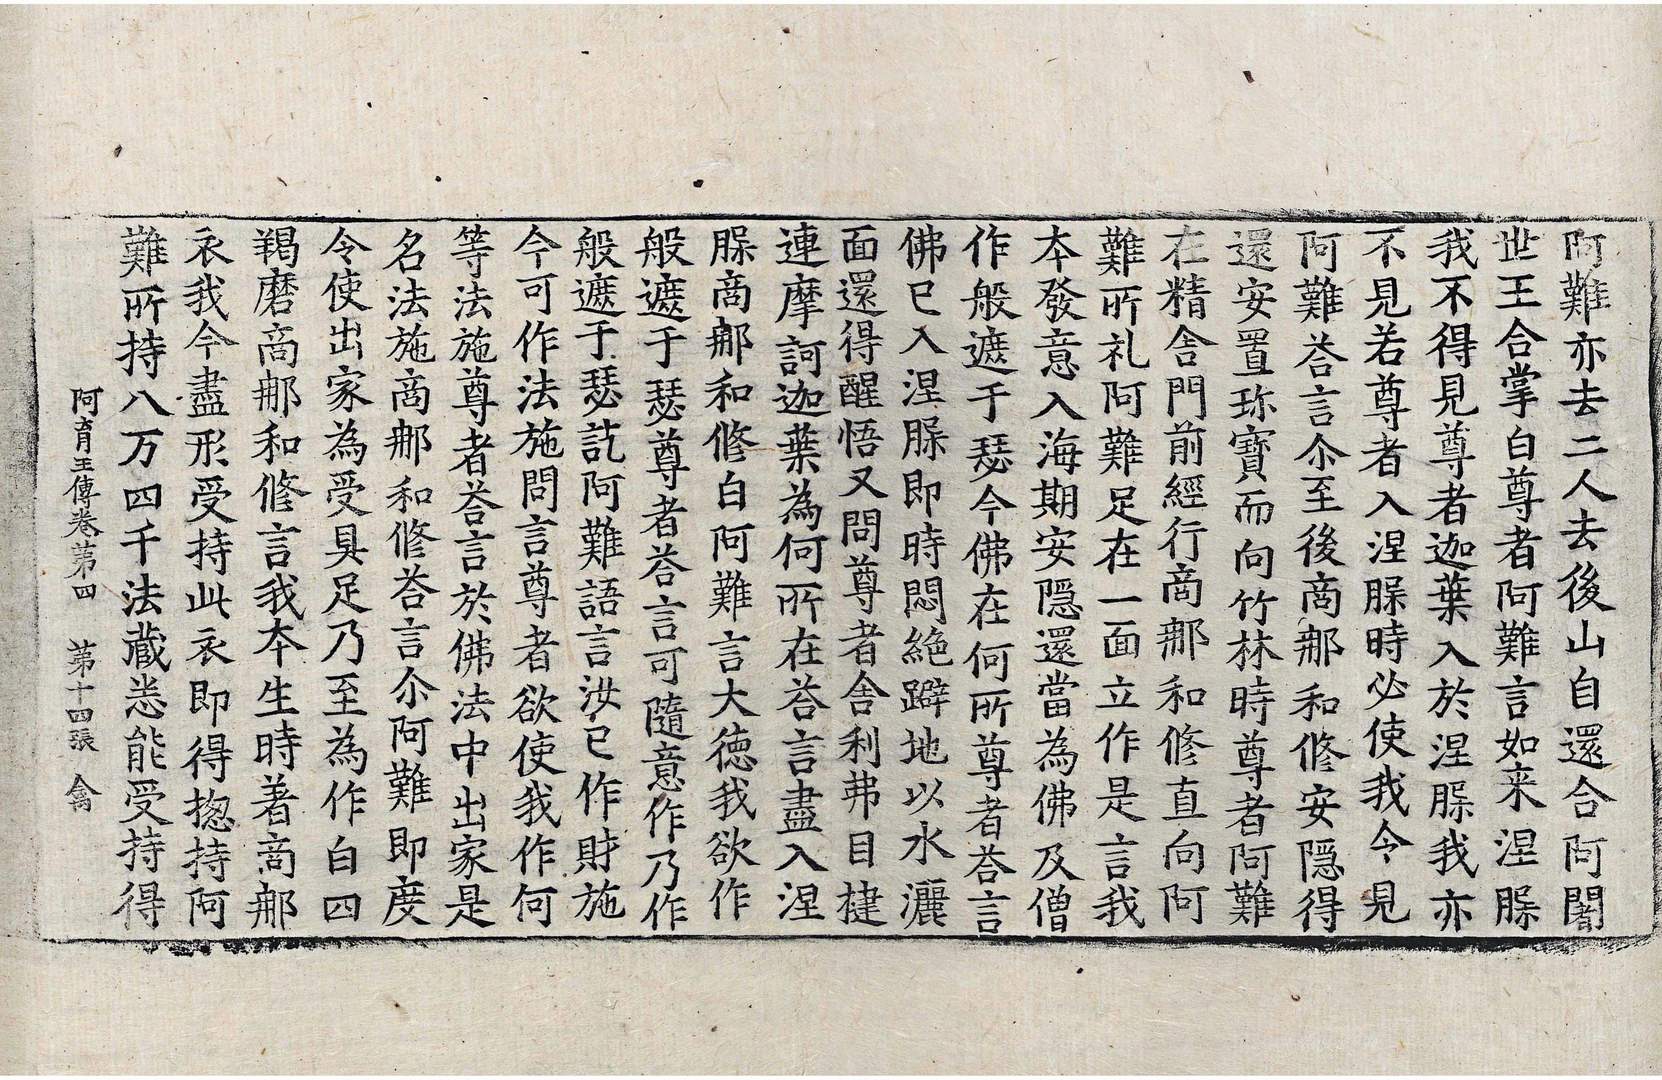 阿難亦去二人去後山自還合阿闍
世王合掌白尊者阿難言如来涅脲
我不得見尊者迦葉入於涅脲我亦
不見若尊者入涅脲時必使我今見
阿難荅言尒至後啇郍和修安隠得
還安置珎寶而向竹林時尊者阿難
在精舎門前經行啇郍和修直向阿
難所礼阿難足在一面立作是言我
夲發意入海期安隠還當為佛及僧
作般遮于瑟今佛在何所尊者荅言
佛已入涅脲即時悶絶躃地以水灑
面還得醒悟又問尊者舎利弗目揵
連摩訶迦葉為何所在荅言盡入涅
脲啇郍和修白阿難言大徳我欲作
般遮于瑟尊者荅言可隨意作乃作
般遮于瑟訖阿難語言汝已作財施
今可作法施問言尊者欲使我作何
等法施尊者荅言於佛法中出家是
名法施啇郍和修荅言尒阿難即度
令使出家為受具足乃至為作白四
羯磨啇郍和修言我夲生時著啇郍
衣我今盡形受持此衣即得揔持阿
難所持八万四千法蔵悉能受持得
阿育王傳卷第四　第十四張　禽